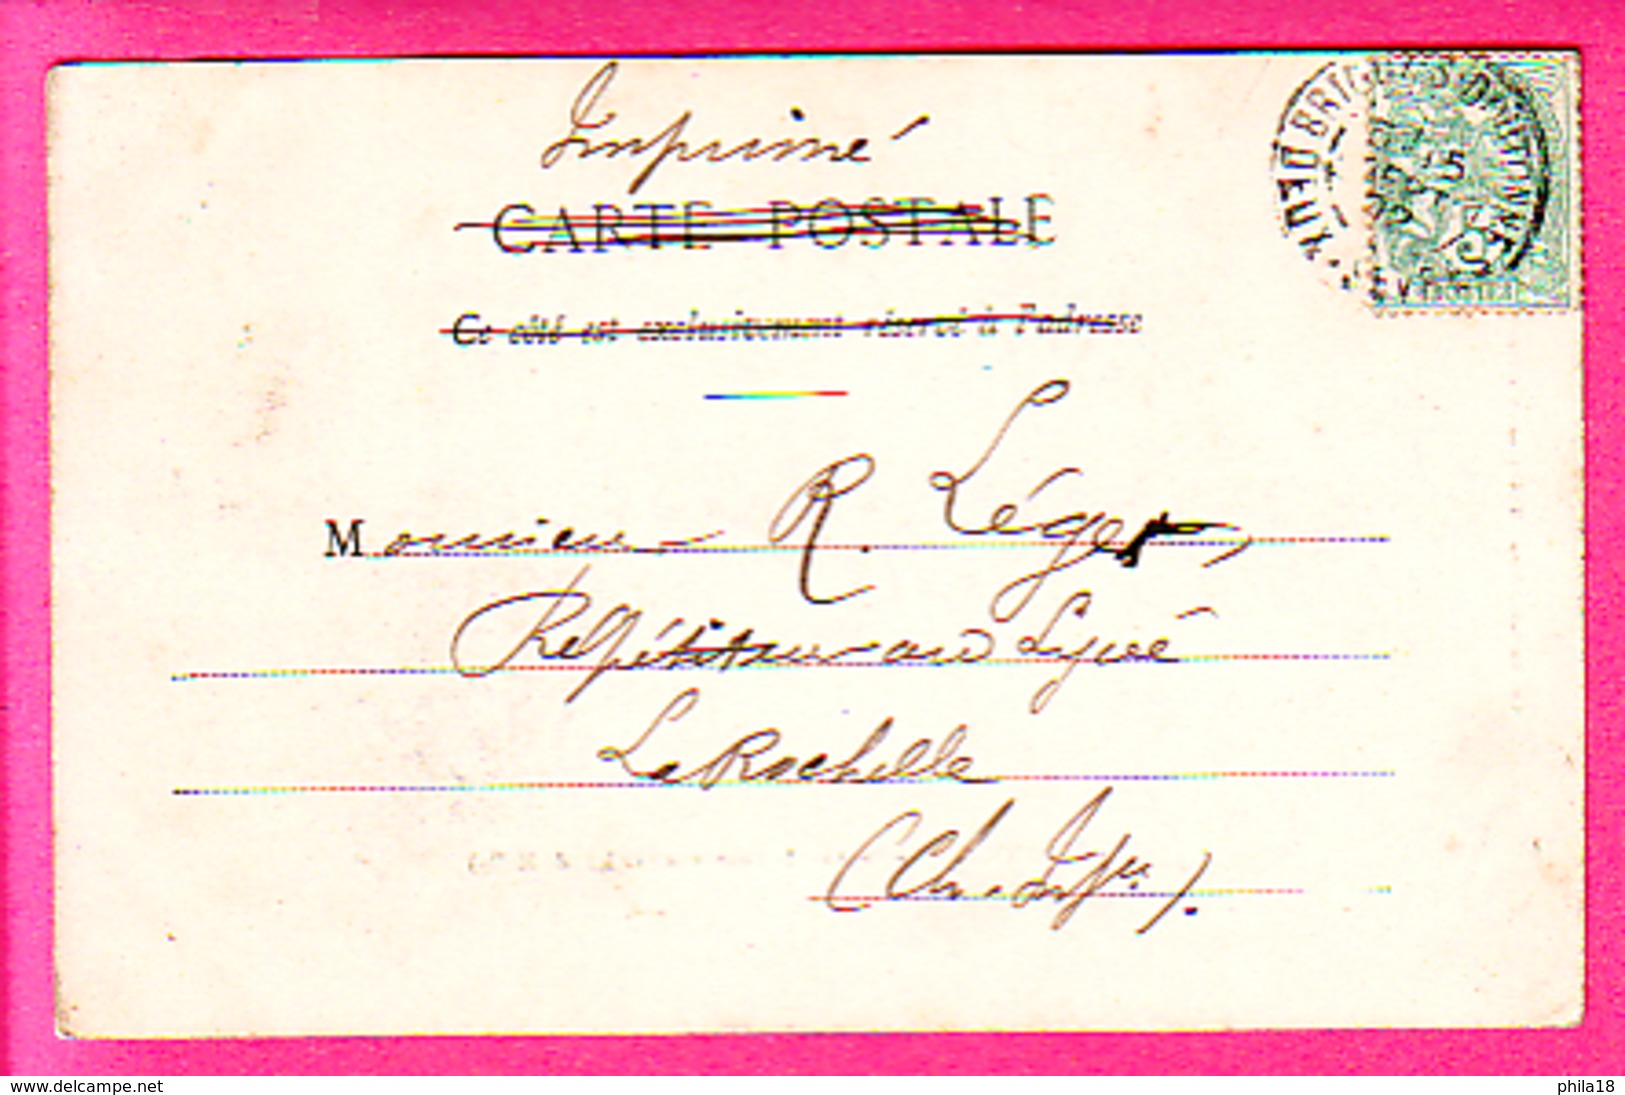 Imprimé
CARTE POSTALE
Ce côté est exclusivement réservé à l'adresse
Monsieur R. Léger,
Répétiteur au Lycée
La Rochelle
(Ch. Infre).
www.delcampe.net
phila18